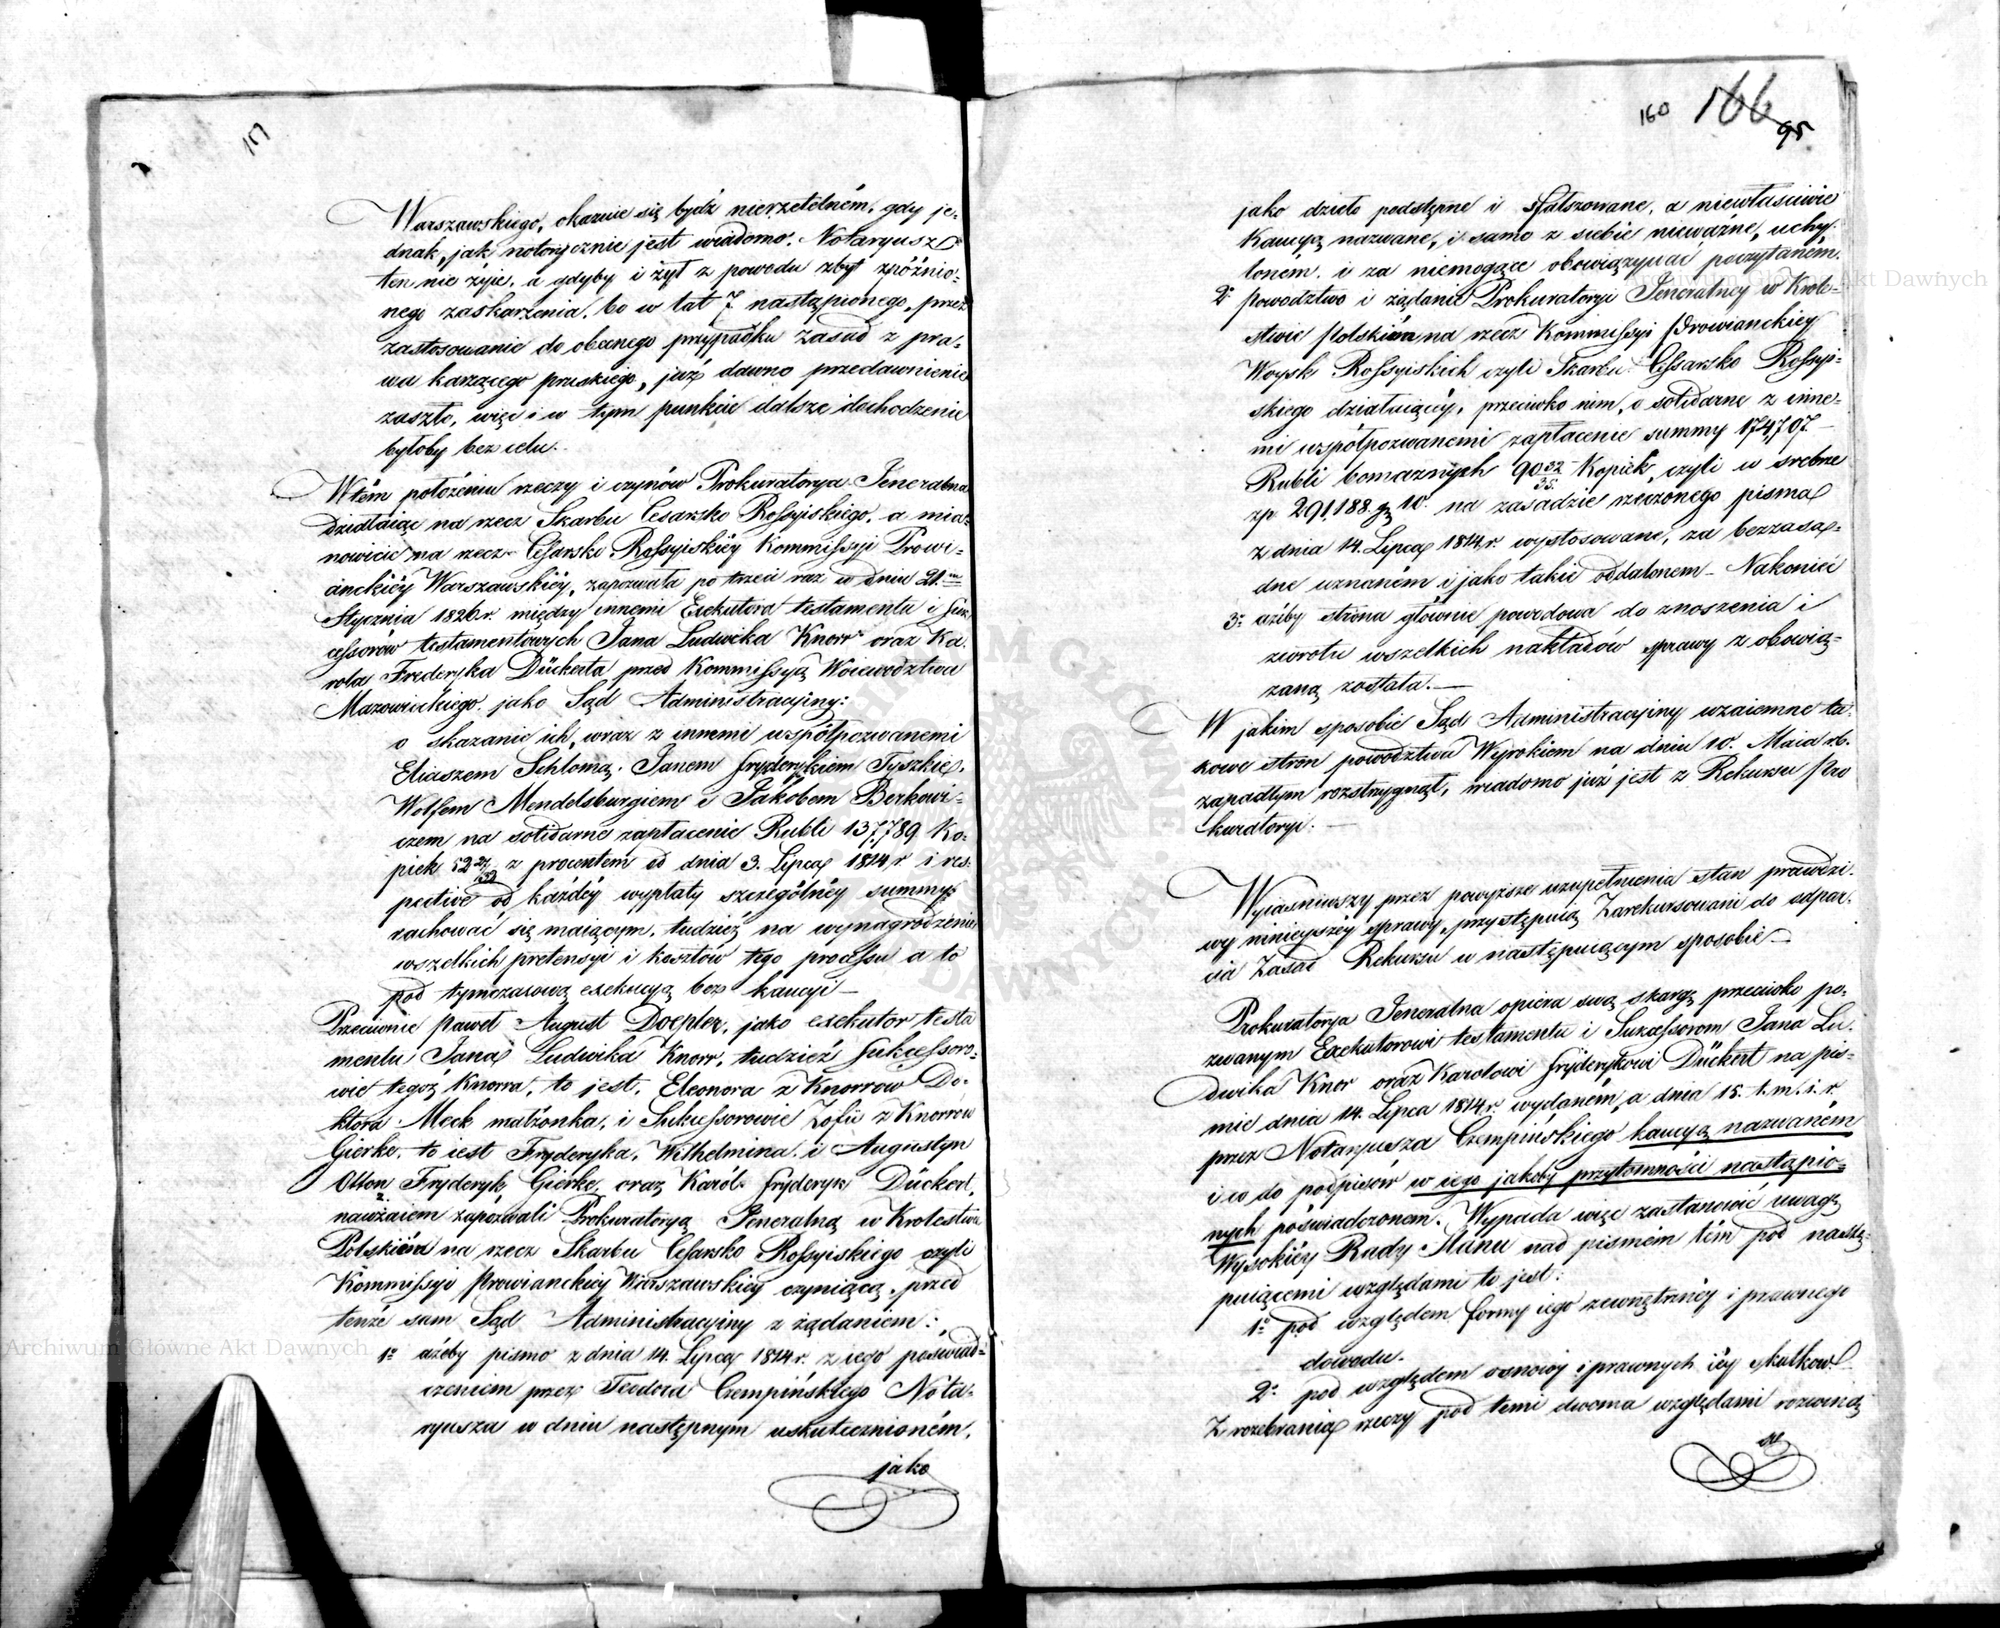 Warszawskiego, okazuie się bydź nierzetelném, gdy je-
dnak, jak notorycznie jest wiadomo, Notaryusz
ten nie żyie, a gdyby i żył z powodu zbyt zpóźnio-
nego zaskarżenia, bo w lat 7 nastąpionego, przez
zastosowanie do obecnego przypadku zasad z pra-
wa karzącego pruskiego, już dawno przedawnienie
zaszło, więc i w tym punkcie dalsze dochodzenie
byłoby bez celu.
W tém położeniu rzeczy i czynów Prokuratorya Jeneralna
działaiąc na rzecz Skarbu Cesarsko Rossyiskiego, a mia-
nowicie na rzecz Cesarsko Rossyiskiéy Kommissyi Prowi-
anckiéy Warszawskiéy, zapozwała po trzeci raz w dniu 21.
Stycznia 1826 r. między innemi Exekutora testamentu i Suk
cessorów testamentowych Jana Ludwika Knorr oraz Ka-
rola Fryderyka Dückerta przed Kommissyą Woiewództwa
Mazowieckiego jako Sąd Administracyjny:
o skazanie ich, wraz z innemi współpozwanemi
Eliaszem Schlomą, Janem Fryderykiem Tyszkie,
Wolfem Mendelsburgiem i Jakobem Berkowi-
czem na solidarne zapłacenie Rubli 137,789 Ko-
piek 52 z procentem od dnia 3. Lipca 1814 r i res-
pective od każdéy wypłaty szczególnéy summy
rachować się maiącym, tudzież na wynagrodzenie
wszelkich pretensyi i kosztów tego processu a to
pod tymczasową exekucyą bez kaucyi —
Przeciwnie Paweł August Doepler, jako exekutor testa
mentu Jana Ludwika Knorr, tudzież Sukcessoro-
wie tegoż Knorra, to jest, Eleonora z Knorrow Do-
ktora Meck małżonka, i Sukcessorowie Zofii z Knorrów
Gierke, to iest Fryderyka, Wilhelmina i Augustyn
Otton Fryderyk Gierke, oraz Karól Fryderyk Dückert,
nawzaiem zapozwali Prokuratoryą Jeneralną w Krolestwie
Polskiém na rzecz Skarbu Cesarsko Rossyiskiego czyli
Kommissyi Prowianckiéy Warszawskiey czyniącą, przed
tenże sam Sąd Administracyiny z żądaniem:
1o ażeby pismo z dnia 14. Lipca 1814 r. z iego poświad-
czeniem przez Teodora Czempińskiego Nota-
ryusza w dniu następnym uskutecznioném,
jako
160 166 95
jako dzieło podstępne i sfałszowane, a niewłaściwie
Kaucyą nazwane, i samo z siebie nieważne, uchy-
loném, i za niemogące obowiązywać poczytaném.
2o powodztwo i żądanie Prokuratoryi Jeneralney w Krole-
stwie Polskiém na rzecz Kommissyi Prowianckiey
Woysk Rossyiskich czyli Skarbu Cessarsko Rossyi-
skiego działaiącéy, przeciwko nim, o solidarne z inne-
mi współpozwanemi zapłacenie summy 174,707.
Rubli bomaznych 90 32/35 Kopiek, czyli w srebrze
zp 291,188. gr 10. na zasadzie rzeczonego pisma
z dnia 14. Lipca 1814 r. wystosowane, za bezzasa-
dne uznaném i jako takie oddalonem — Nakoniec
3o ażeby strona głównie powodowa do znoszenia i
zwrotu wszelkich nakładów sprawy z obowią-
zaną została. —
W jakim sposobie Sąd Administracyiny wzaiemne ta-
kowe stron powodztwa Wyrokiem na dniu 10. Maia rb.
zapadłym rozstrzygnął, wiadomo już jest z Rekursu Pro
kuratoryi. —
Wyiaśniwszy przez powyższe uzupełnienia stan prawdzi-
wy ninieyszéy sprawy, przystępuią Zarekursowani do odpar-
cia Zasad Rekursu w następuiącym sposobie —
Prokuratorya Jeneralna opiera swą skargę przeciwko po-
zwanym Exekutorowi testamentu i Sukcessorom Jana Lu-
dwika Knor oraz Karolowi Fryderykowi Dückert na piś-
mie dnia 14. Lipca 1814 r. wydaném, a dnia 15. t. m. i. r.
przez Notaryusza Czempińskiego kaucyą nazwaném
i co do podpisów w iego jakoby przytomności nastąpio-
nych poświadczonem. Wypada więc zastanowić uwagę
Wysokiéy Rady Stanu nad pismém tém pod nastę-
puiącemi względami to jest:
1o pod względem formy iego zewnętrznéy i prawnego
dowodu.
2o pod względem osnowy i prawnych iéy skutkow
Z rozebrania rzeczy pod temi dwoma względami rozwinie
się
Archiwum Główne Akt Dawnych
Archiwum Główne Akt Dawnych